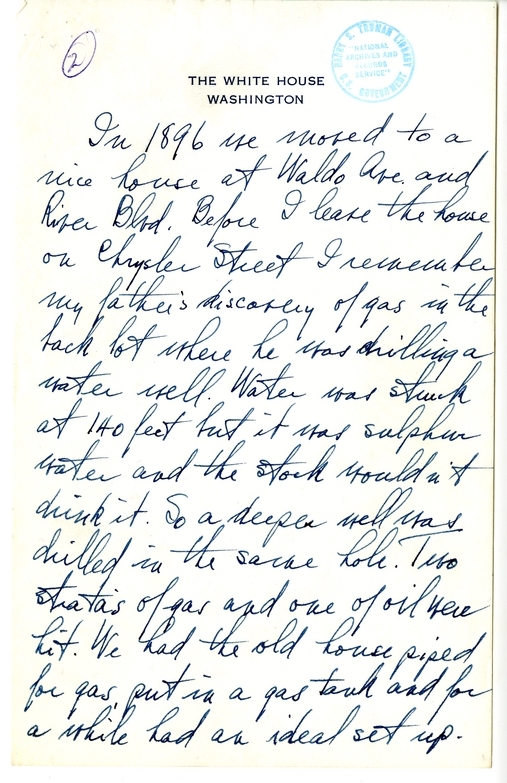 2
HARRY S. TRUMAN LIBRARY
"NATIONAL
ARCHIVES AND
RECORDS
SERVICE"
U.S. GOVERNMENT
THE WHITE HOUSE
WASHINGTON
In 1896 we moved to a
nice house at Waldo Ave. and
River Blvd. Before I leave the house
on Chrysler Street I remember
my father's discovery of gas in the
back lot where he was drilling a
water well. Water was struck
at 140 feet but it was sulphur
water and the stock wouldn't
drink it. So a deeper well was
drilled in the same hole. Two
stratas of gas and one of oil were
hit. We had the old house piped
for gas, put in a gas tank and for
a while had an ideal set up.